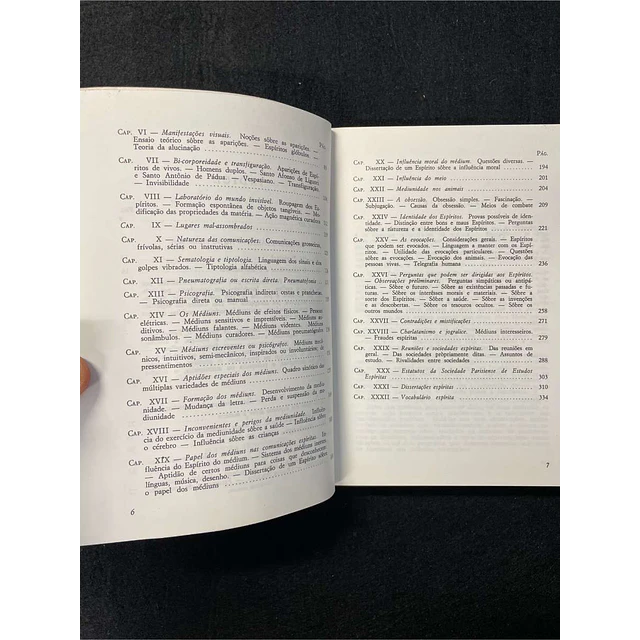 PÁG.
CAP. VI — Manifestações visuais. Noções sôbre as aparições. —
Ensaio teórico sôbre as aparições. — Espíritos glóbulos. —
Teoria da alucinação
CAP. VII — Bi-corporeidade e transfiguração. Aparições de Espí-
ritos de vivos. — Homens duplos. — Santo Afonso de Liguori
e Santo Antônio de Pádua. — Vespasiano. — Transfiguração.
— Invisibilidade
CAP. VIII — Laboratório do mundo invisível. Roupagem dos Es-
píritos. — Formação espontânea de objetos tangíveis. — Mo-
dificação das propriedades da matéria. — Ação magnética curadora
CAP. IX — Lugares mal-assombrados
CAP. X — Natureza das comunicações. Comunicações grosseiras,
frívolas, sérias ou instrutivas
CAP. XI — Sematologia e tiptologia. Linguagem dos sinais e dos
golpes vibrados. — Tiptologia alfabética
CAP. XII — Pneumatografia ou escrita direta. Pneumatofonia
CAP. XIII — Psicografia. Psicografia indireta: cestas e pranchetas.
— Psicografia direta ou manual
CAP. XIV — Os Médiuns. Médiuns de efeitos físicos. — Pessoas
elétricas. — Médiuns sensitivos e impressíveis. — Médiuns
auditivos. — Médiuns falantes. — Médiuns videntes. Médiuns
sonâmbulicos. — Médiuns curadores. — Médiuns pneumatógrafos
CAP. XV — Médiuns escreventes ou psicógrafos. Médiuns mecâ-
nicos, intuitivos, semi-mecânicos, inspirados ou involuntários; de
pressentimentos
CAP. XVI — Aptidões especiais dos médiuns. Quadro sinótico das
múltiplas variedades de médiuns
CAP. XVII — Formação dos médiuns. Desenvolvimento da mediu-
nidade. — Mudança da letra. — Perda e suspensão da me-
diunidade
CAP. XVIII — Inconvenientes e perigos da mediunidade. Influên-
cia do exercício da mediunidade sôbre a saúde — Influência sôbre
o cérebro — Influência sôbre as crianças
CAP. XIX — Papel dos médiuns nas comunicações espíritas. In-
fluência do Espírito do médium. — Sistema dos médiuns inertes.
— Aptidão de certos médiuns para coisas que desconhecem
línguas, música, desenho. — Dissertação de um Espírito sôbre
o papel dos médiuns
6
PÁG.
CAP. XX — Influência moral do médium. Questões diversas. —
Dissertação de um Espírito sôbre a influência moral 194
CAP. XXI — Influência do meio 201
CAP. XXII — Mediunidade nos animais 204
CAP. XXIII — A obsessão. Obsessão simples. — Fascinação. —
Subjugação. — Causas da obsessão. — Meios de combate 209
CAP. XXIV — Identidade dos Espíritos. Provas possíveis de iden-
tidade. — Distinção entre bons e maus Espíritos. — Perguntas
sôbre a natureza e a identidade dos Espíritos 221
CAP. XXV — As evocações. Considerações gerais. — Espíritos
que podem ser evocados. — Linguagem a manter com os Espí-
ritos. — Utilidade das evocações particulares. — Questões
sôbre as evocações. — Evocação dos animais. — Evocação das
pessoas vivas. — Telegrafia humana 236
CAP. XXVI — Perguntas que podem ser dirigidas aos Espíritos.
— Observações preliminares. — Perguntas simpáticas ou antipá-
ticas. — Sôbre o futuro. — Sôbre as existências passadas e fu-
turas. — Sôbre os interêsses morais e materiais. — Sôbre a
sorte dos Espíritos. — Sôbre a saúde. — Sôbre as invenções
e as descobertas. — Sôbre os tesouros ocultos. — Sôbre outros
mundos 258
CAP. XXVII — Contradições e mistificações 271
CAP. XXVIII — Charlatanismo e jogralice. Médiuns interesseiros.
— Fraudes espíritas 282
CAP. XXIX — Reuniões e sociedades espíritas. Das reuniões em
geral. — Das sociedades pròpriamente ditas. — Assuntos de
estudo. — Rivalidades entre sociedades 288
CAP. XXX — Estatutos da Sociedade Parisiense de Estudos
Espíritas 303
CAP. XXXI — Dissertações espíritas 310
CAP. XXXII — Vocabulário espírita 334
7